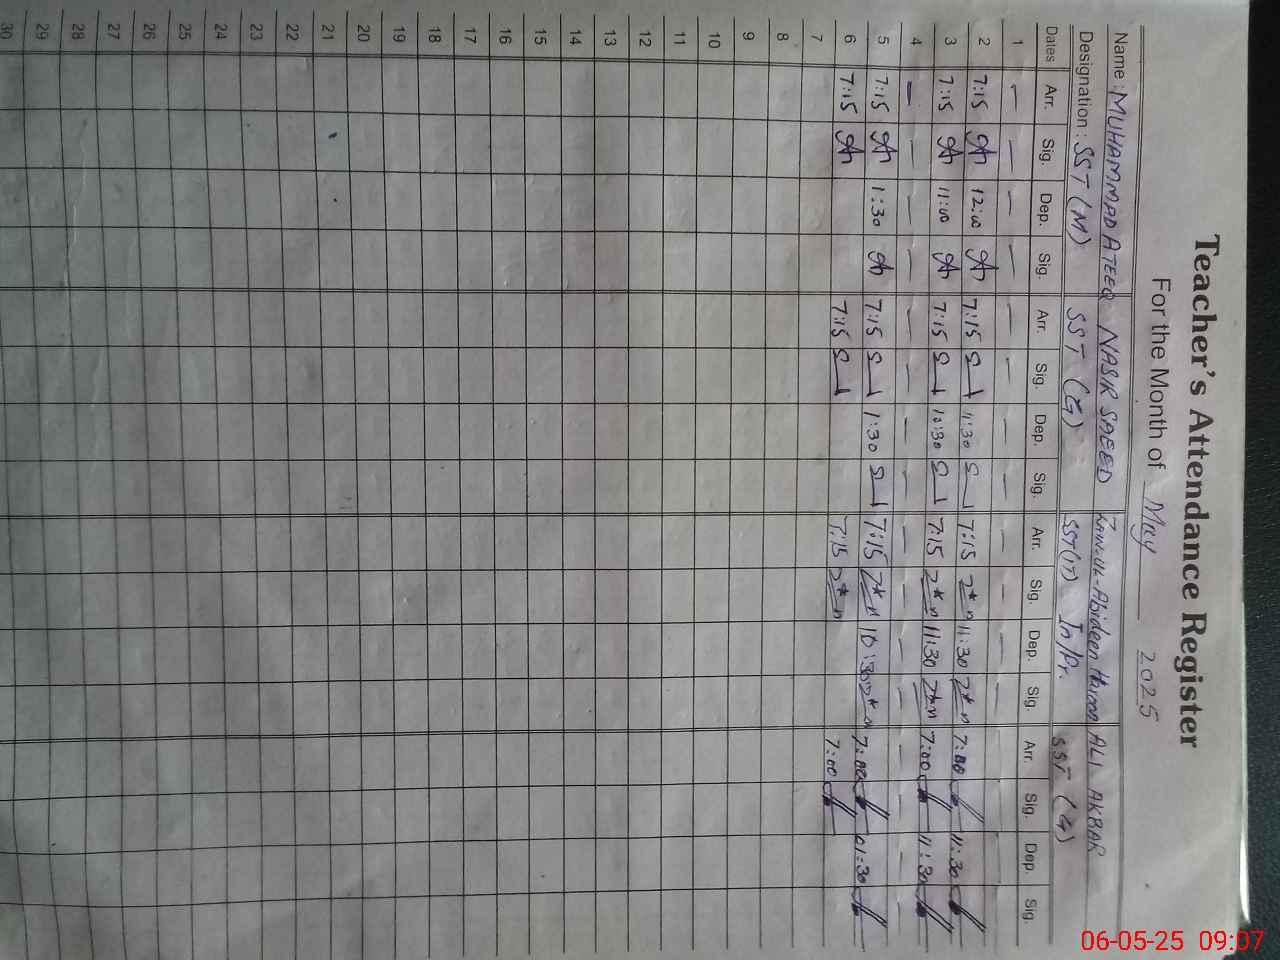 Teacher's Attendance Register
For the Month of May 2025
Name : MUHAMMAD ATEEQ NASIR SAEED Zain-ul-Abideen ALI AKBAR
Designation : SST (M) SST (G) SST (IT) In/Pr. SST (G)
Dates Arr. Sig. Dep. Sig. Arr. Sig. Dep. Sig. Arr. Sig. Dep. Sig. Arr. Sig. Dep. Sig.
1 — — — — — — — — — — — —
2 7:15 12:00 7:15 11:30 7:15 11:30 7:00 11:30
3 7:15 11:00 7:15 10:30 7:15 11:30 7:00 11:30
4 — — — — — — — — — — — — — — —
5 7:15 1:30 7:15 1:30 7:15 7:00 01:30
6 7:15 7:15 7:15 7:00
7
8
9
10
11
12
13
14
15
16
17
18
19
20
21
22
23
24
25
26
27
28
29
30
06-05-25 09:07